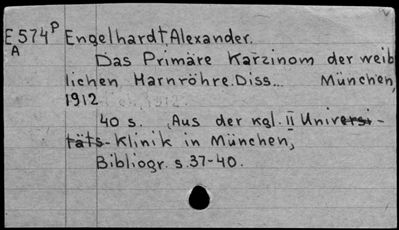 E 574 P Engelhardt, Alexander.
A
Das Primäre Karzinom der weib
lichen Harnröhre. Diss... München,
1912
40 s. Aus der kgl. II Universi-
täts-Klinik in München,
Bibliogr. s. 37-40.